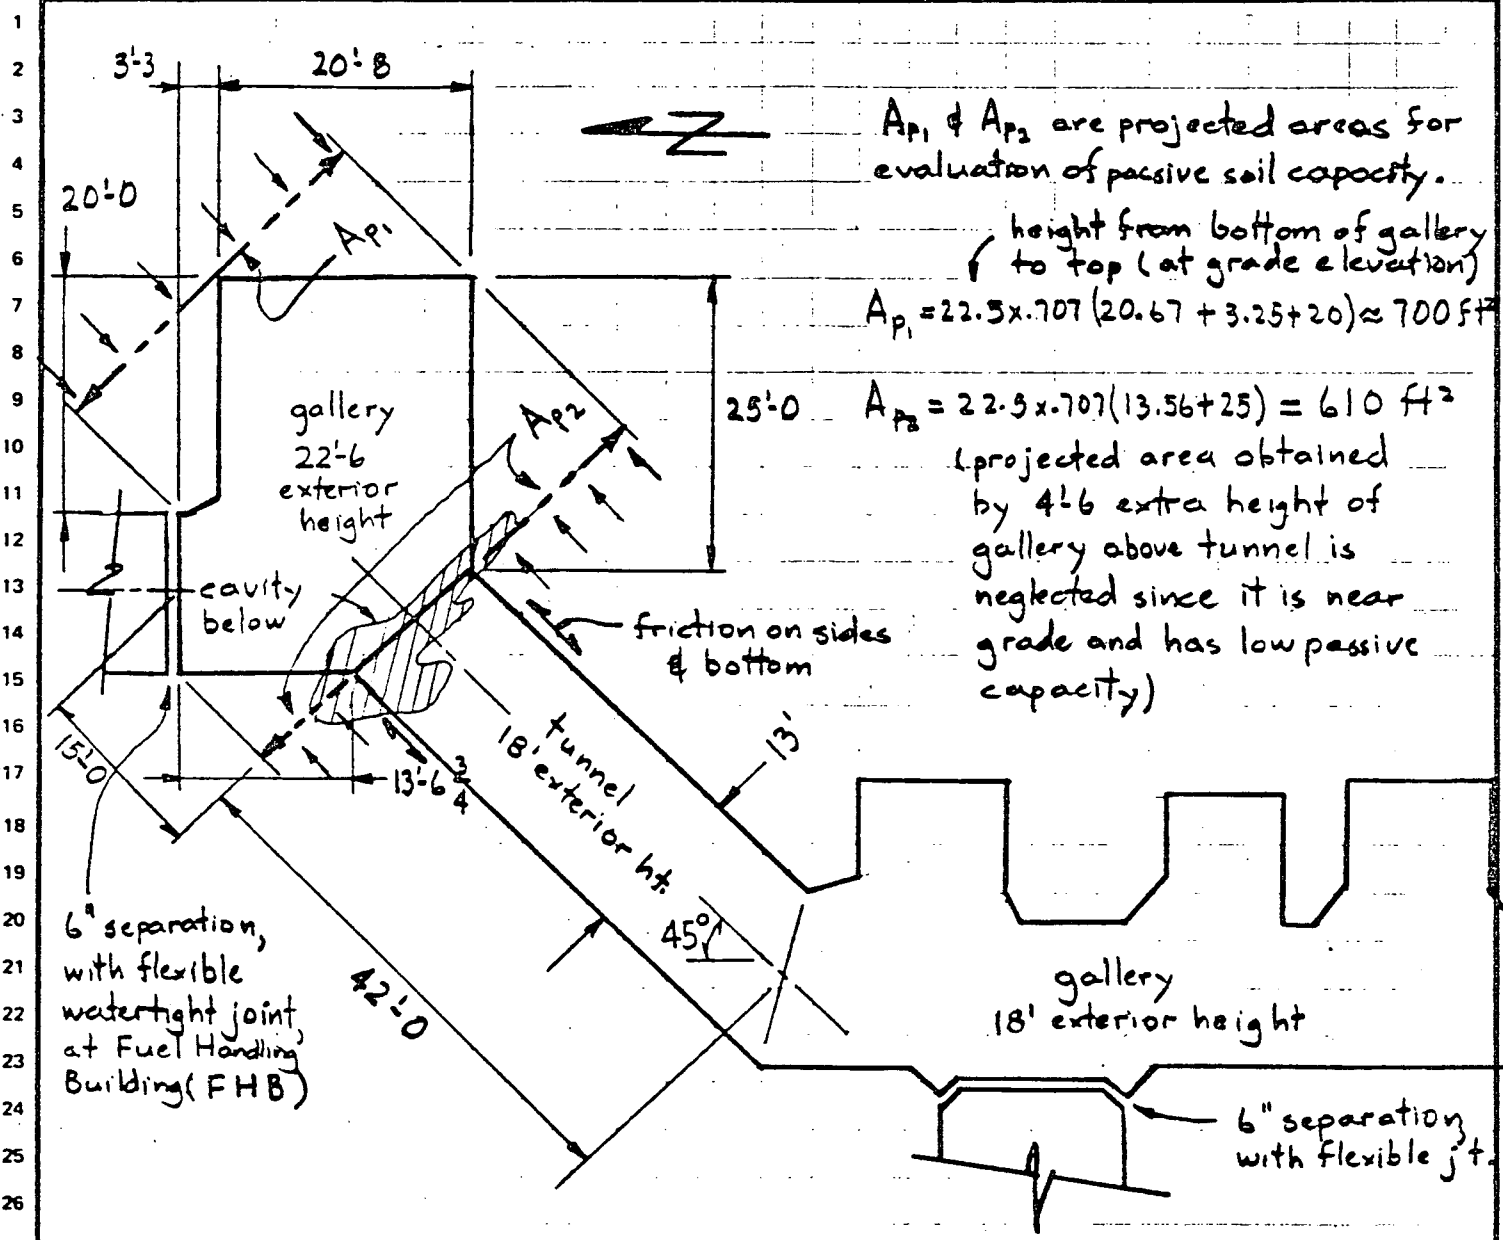 1
2
3
4
5
6
7
8
9
10
11
12
13
14
15
16
17
18
19
20
21
22
23
24
25
26
3'-3
20'-8
N
20'-0
Ap1
Ap1 & Ap2 are projected areas for
evaluation of passive soil capacity.
height from bottom of gallery
to top (at grade elevation)
Ap1 = 22.5x.707(20.67 + 3.25+20) ≈ 700 ft²
25'-0
Ap2 = 22.5x.707(13.56+25) = 610 ft²
(projected area obtained
by 4'-6 extra height of
gallery above tunnel is
neglected since it is near
grade and has low passive
capacity)
gallery
22'-6
exterior
height
Ap2
cavity
below
friction on sides
& bottom
15'-0
13'-6 3/4
tunnel
18' exterior ht.
13'
45°
42'-0
6" separation,
with flexible
watertight joint,
at Fuel Handling
Building (FHB)
gallery
18' exterior height
6" separation,
with flexible jt.